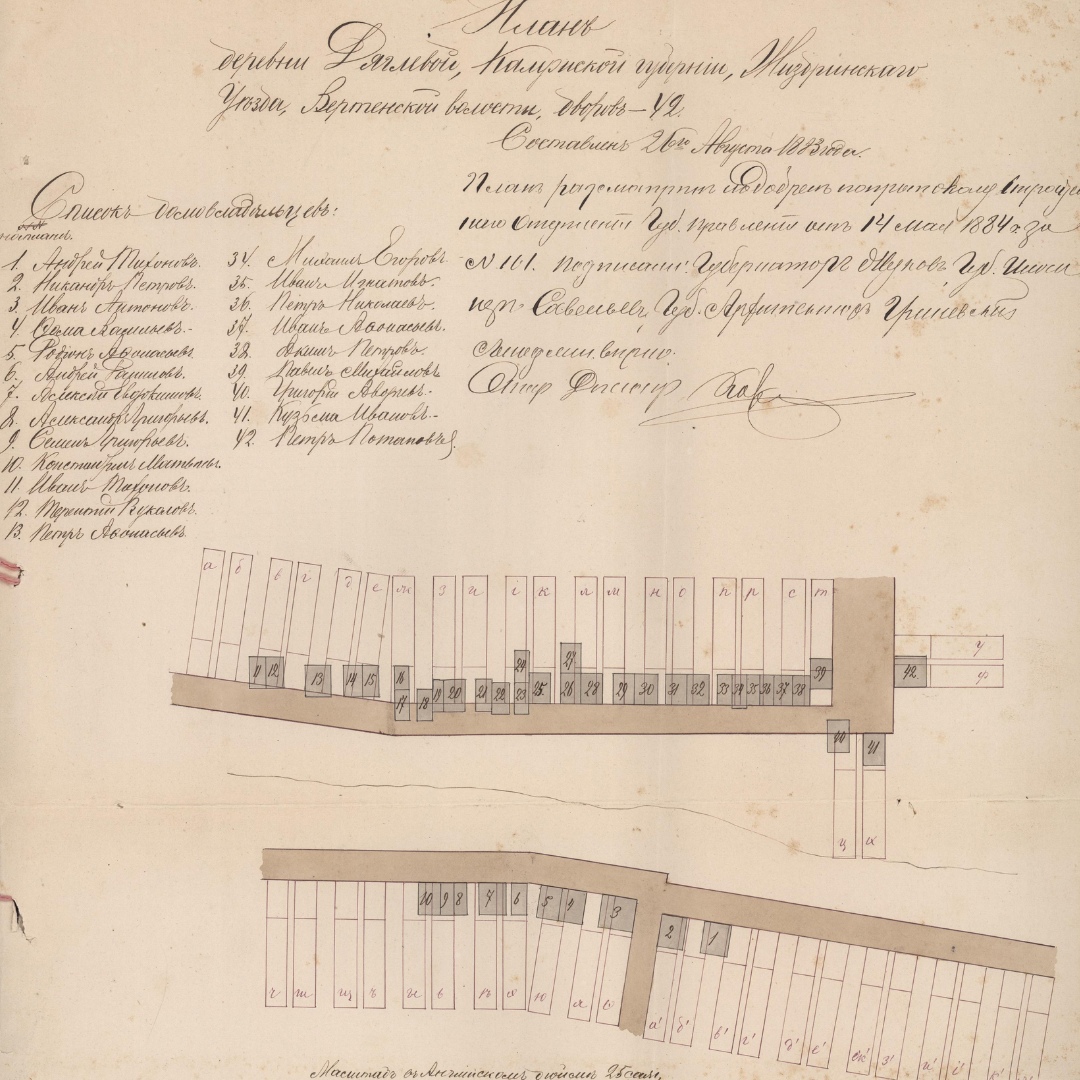 Планъ
деревни Дяглевой, Калужской губерніи, Жиздринскаго
Уѣзда, Вертенской волости, дворовъ – 42.
Составленъ 26го Августа 1883 года.
Планъ разсматринъ и одобренъ
Отдѣленіи Губ. Правленія отъ 14 мая 1884 г. за
№ 101. Подписали: Губернаторъ Жуковъ, Губ.
Савельевъ, Губ. Архитекторъ
вѣрно:
Списокъ домовладѣльцевъ:
1. Андрей Тихоновъ.
2. Никаноръ Петровъ.
3. Иванъ Антоновъ.
4.
5. Родіонъ Афонасьевъ.
6. Андрей
7. Алексѣй Евдокимовъ.
8. Александръ Григорьевъ.
9. Семенъ Григорьевъ.
10. Константинъ Матвѣевъ.
11. Иванъ Тихоновъ.
12. Терентій
13. Петръ Афонасьевъ
34. Михаилъ Егоровъ
35. Иванъ Игнатовъ.
36. Петръ Николаевъ.
37. Иванъ Афонасьевъ.
38. Петровъ.
39. Павелъ Михайловъ
40. Григорій
41. Кузьма Ивановъ.
42. Петръ Потаповъ
а б в г д е ж з и і к л м н о п р с т
у
ф
11 12 13 14 15 16 17 18 19 20 21 22 23 24 25 26 27 28 29 30 31 32 33 34 35 36 37 38 39
42
40 41
ц х
10 9 8 7 6 5 4 3 2 1
ч ш щ ъ ы ь ѣ э ю я
а' б' в' г' д' е' ж' з' и' і'
Масштабъ въ Англійскомъ дюймѣ 25 саж.